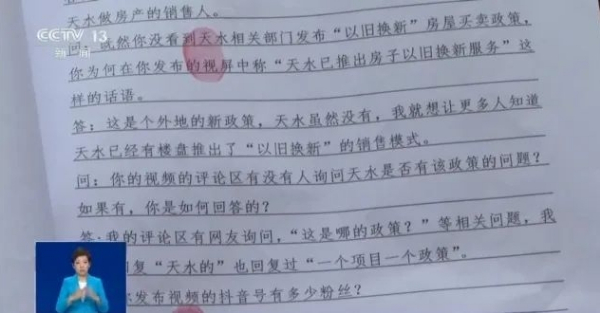 CCTV 13
新闻
天水做房产的销售人。
问：既然你没看到天水相关部门发布“以旧换新”房屋买卖政策，
你为何在你发布的视屏中称“天水已推出房子以旧换新服务”这
样的话语。
答：这是个外地的新政策，天水虽然没有，我就想让更多人知道
天水已经有楼盘推出了“以旧换新”的销售模式。
问：你的视频的评论区有没有人询问天水是否有该政策的问题？
如果有，你是如何回答的？
答：我的评论区有网友询问，“这是哪的政策？”等相关问题，我
回复“天水的”也回复过“一个项目一个政策”。
你发布视频的抖音号有多少粉丝？